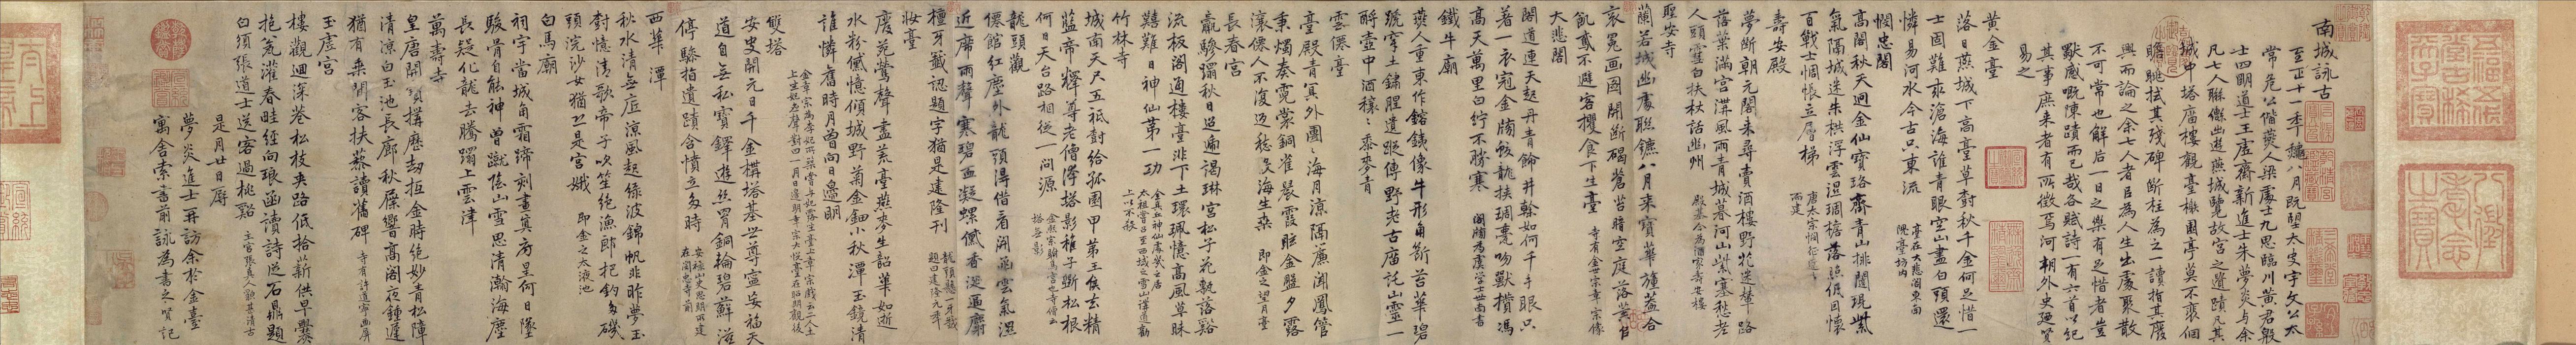 南城詠古
至正十一年龝八月既望太史宇文公太
常危公偕燕人梁處士九思臨川黃君殷
士四明道士王虛齋新進士朱夢炎与余
凡七人聯轡出遊燕城覽故宮之遺蹟凡其
城中塔廟樓觀臺榭園亭莫不裵徊
瞻眺拭其殘碑断柱為之一讀指其廢
興而論之余七人者㠯為人生出處聚散
不可常也解后一日之樂有足惜者豈
獨感嘅陳蹟而已哉各賦詩一有六首以紀
其事庶來者有所徵焉河朔外史迺賢
易之
黃金臺
落日燕城下高臺草對秋千金何足惜一
士固難求滄海誰青眼空山盡白頭還
憐易河水今古只東流
憫忠閣
高閣秋天迥金仙寶珞齋青山排闥現紫
氣隔城迷朱栱浮雲濕琱檐落照低因懷
百戰士惆悵立層梯
唐太宗憫征遼
而建
壽安殿
夢斷朝元閣来尋賣酒樓野花迷輦路
落葉滿宮溝風雨青城暮河山紫塞愁老
人頭雪白扶杖話幽州
殿基今為酒家壽安樓
聖安寺
蘭若城幽處聯鑣八月来寶華幢盖合
衮冕画圖開断碣蒼苔暗空庭落葉堆
飢鳶不避客攫食下生臺
寺有金世宗章宗像
大悲閣
閣道連天起丹青餙井榦如何千手眼只
著一衣冠金牓皎龍扶琱甍吻獸攢馮
高天萬里白紵不勝寒
閣牓為虞學士世南書
鐵牛廟
燕人重東作鎔鉄像牛形角斷苔華碧
蹏穿土鏽腥遺蹤傳野老古廟託山靈一
酹壺中酒穰穰黍麥青
雲僊臺
臺殿青冥外團團海月涼隔簾聞鳳管
秉燭奏霓裳銅雀晨霞眩金盤夕露
瀼僊人不復返愁見海生桑
即金之望月臺
長春宮
羸驂躡秋日迢遞謁琳宮松子花甎落谿
流板閣通樓臺非下土環珮憶高風草昧
艱難日神仙第一功
竹林寺
城南天尺五祗對給孤園甲第王侯去精
藍帝釋尊老僧浮塔影稚子斲松根
何日天台路相從一問源
龍頭觀
僊館紅塵外龍頭得借看開函雲氣濕
近席雨聲寒碧匝凝螺儀香涎逼麝
檀牙籤認題字猶是建隆刊
妝臺
廢苑鶯聲盡荒臺燕麥生韶華如逝
水粉儀憶傾城野菊金鈿小秋潭玉鏡清
誰憐舊時月曾向日邊明
雙塔
安史開元日千金構塔基世尊寧妄福天
道自無私寶鐸遊絲罥銅輪碧蘚滋
停驂指遺蹟含憤立多時
安祿山史思明所建
在憫忠寺前
西華潭
秋水清無底涼風起綠波錦帆非昨夢玉
樹憶清歌帝子吹笙絕漁郎把釣多磯
頭浣沙女猶恐是宮娥
即金之太液池
白馬廟
祠宇當城角霜蹄刻畫真房星何日墮
駿骨自能神曾蹴隂山雪思清瀚海塵
長疑化龍去騰躡上雲津
萬壽寺
皇唐開寶構歷劫抵金時絕妙青松障
清凉白玉池長廊秋屧響高閣夜鍾遲
猶有乘閒客扶藜讀舊碑
寺有許道寧画屏
玉虛宮
樓觀迴深巷松枝夹路低拾薪供早爨
抱瓮灌春畦經向琅函讀詩從石鼎題
白須張道士送客過桃谿
是月廿日
夢炎進士再訪余於金臺
寓舍索書前詠為書之賢記